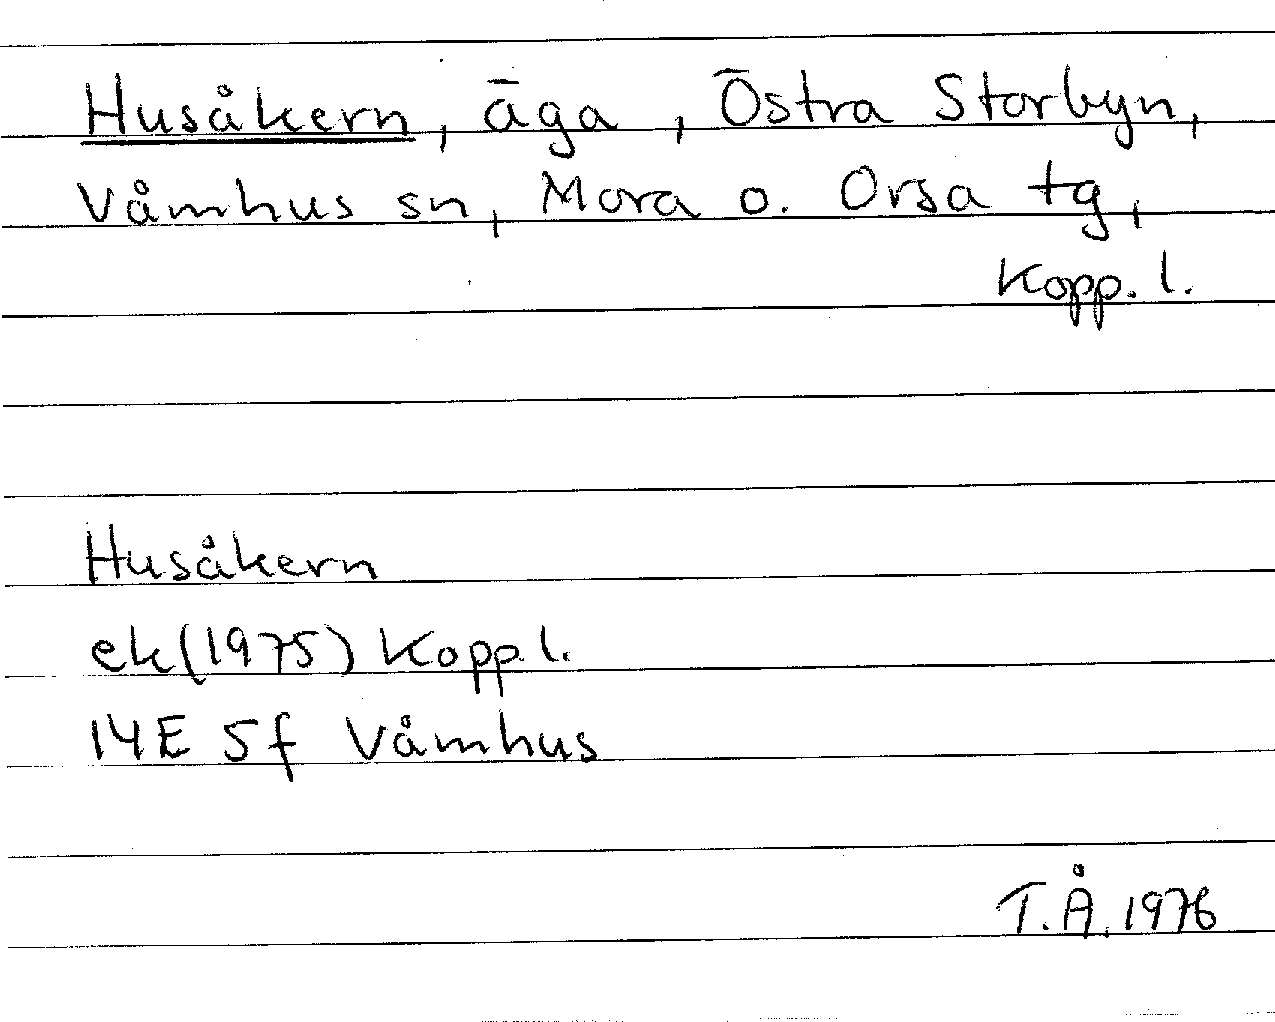 Husåkern, äga, Östra Storbyn,
Våmhus sn, Mora o. Orsa tg,
Kopp. l.
Husåkern
ek(1975) Kopp. l.
14E 5f Våmhus
T.Å. 1976